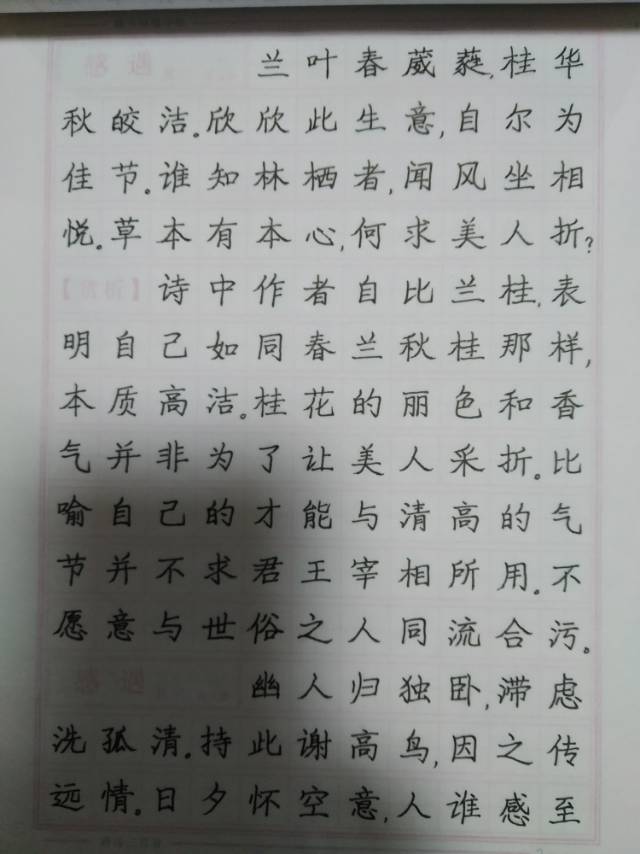 感遇 兰叶春葳蕤,桂华
秋皎洁。欣欣此生意,自尔为
佳节。谁知林栖者,闻风坐相
悦。草本有本心,何求美人折?
【赏析】 诗中作者自比兰桂,表
明自己如同春兰秋桂那样,
本质高洁。桂花的丽色和香
气并非为了让美人采折。比
喻自己的才能与清高的气
节并不求君王宰相所用。不
愿意与世俗之人同流合污。
感遇 幽人归独卧,滞虑
洗孤清。持此谢高鸟,因之传
远情。日夕怀空意,人谁感至